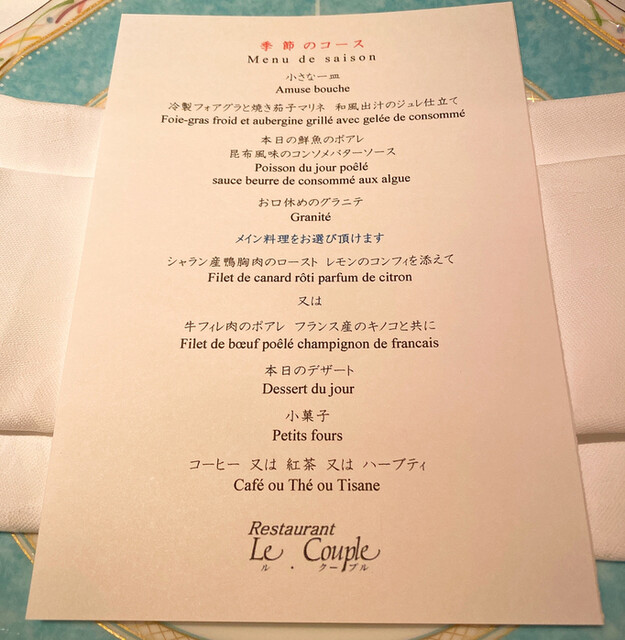 季節のコース
Menu de saison
小さな一皿
Amuse bouche
冷製フォアグラと焼き茄子マリネ 和風出汁のジュレ仕立て
Foie-gras froid et aubergine grillé avec gelée de consommé
本日の鮮魚のポアレ
昆布風味のコンソメバターソース
Poisson du jour poêlé
sauce beurre de consommé aux algue
お口休めのグラニテ
Granité
メイン料理をお選び頂けます
シャラン産鴨胸肉のロースト レモンのコンフィを添えて
Filet de canard rôti parfum de citron
又は
牛フィレ肉のポアレ フランス産のキノコと共に
Filet de bœuf poêlé champignon de francais
本日のデザート
Dessert du jour
小菓子
Petits fours
コーヒー 又は 紅茶 又は ハーブティ
Café ou Thé ou Tisane
Restaurant
Le Couple
ル・クープル